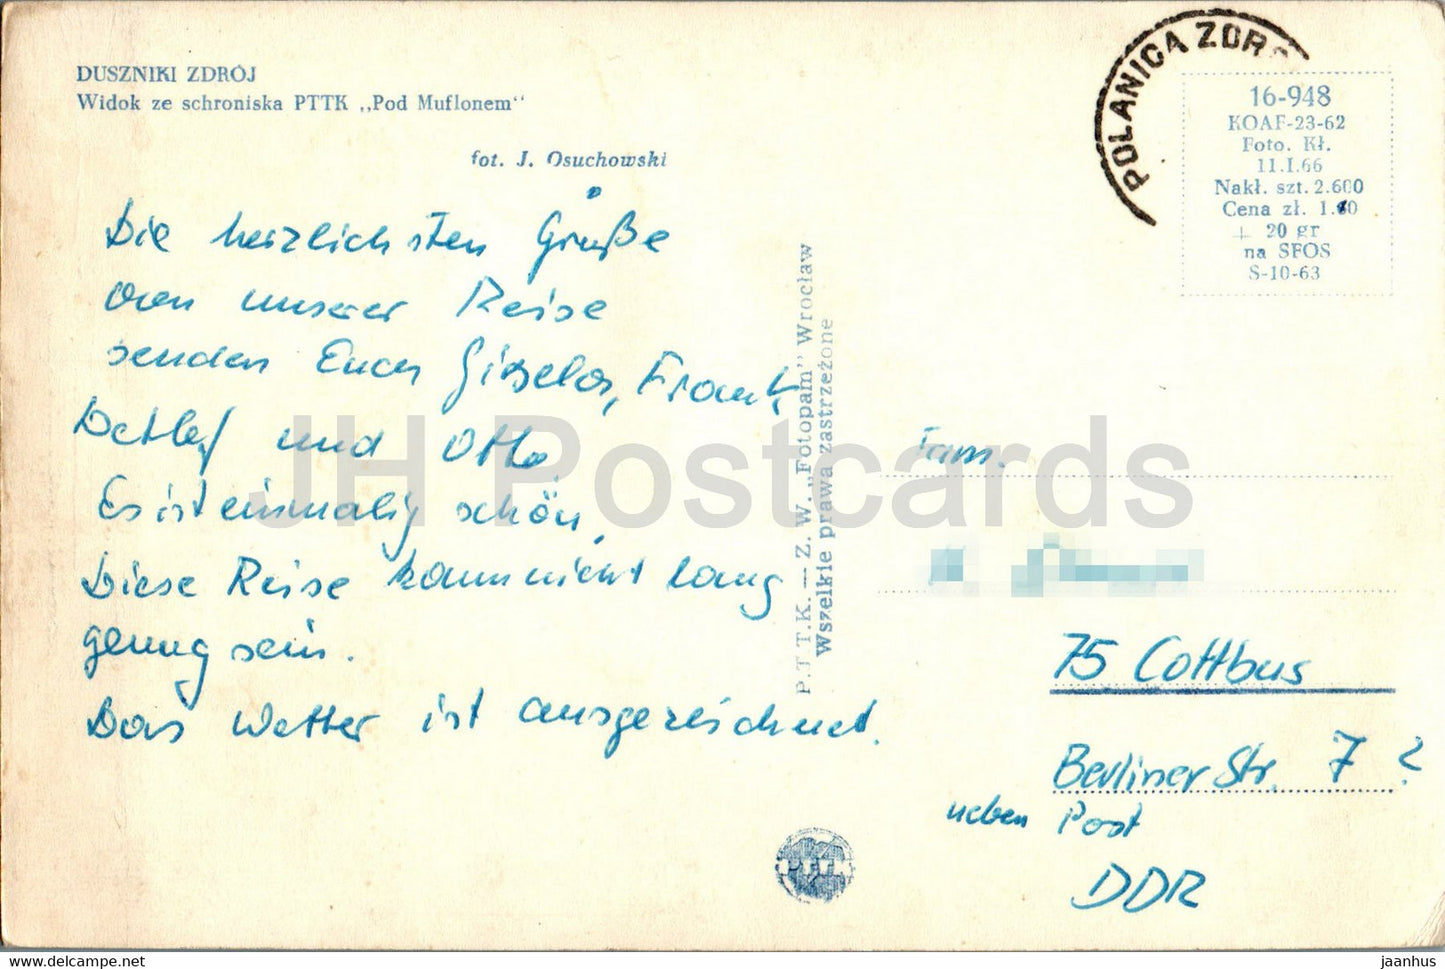 DUSZNIKI ZDRÓJ
Widok ze schroniska PTTK „Pod Muflonem“
fot. J. Osuchowski
Die herzlichsten Grüße
von unserer Reise
senden Euch Gisela, Frank,
Detlef und Otto.
Es ist einmalig schön,
Diese Reise kann nicht lang
genug sein.
Das Wetter ist ausgezeichnet.
P.T.T.K. — Z. W. „Fotopam” Wrocław
Wszelkie prawa zastrzeżone
PTTK
POLANICA ZDR
16-948
KOAF-23-62
Foto. Kł.
11.I.66
Nakł. szt. 2.600
Cena zł. 1.60
+ 20 gr
na SFOS
S-10-63
Fam.
75 Cottbus
Berliner Str. 7 ?
neben Post
DDR
JH Postcards
jaanhus